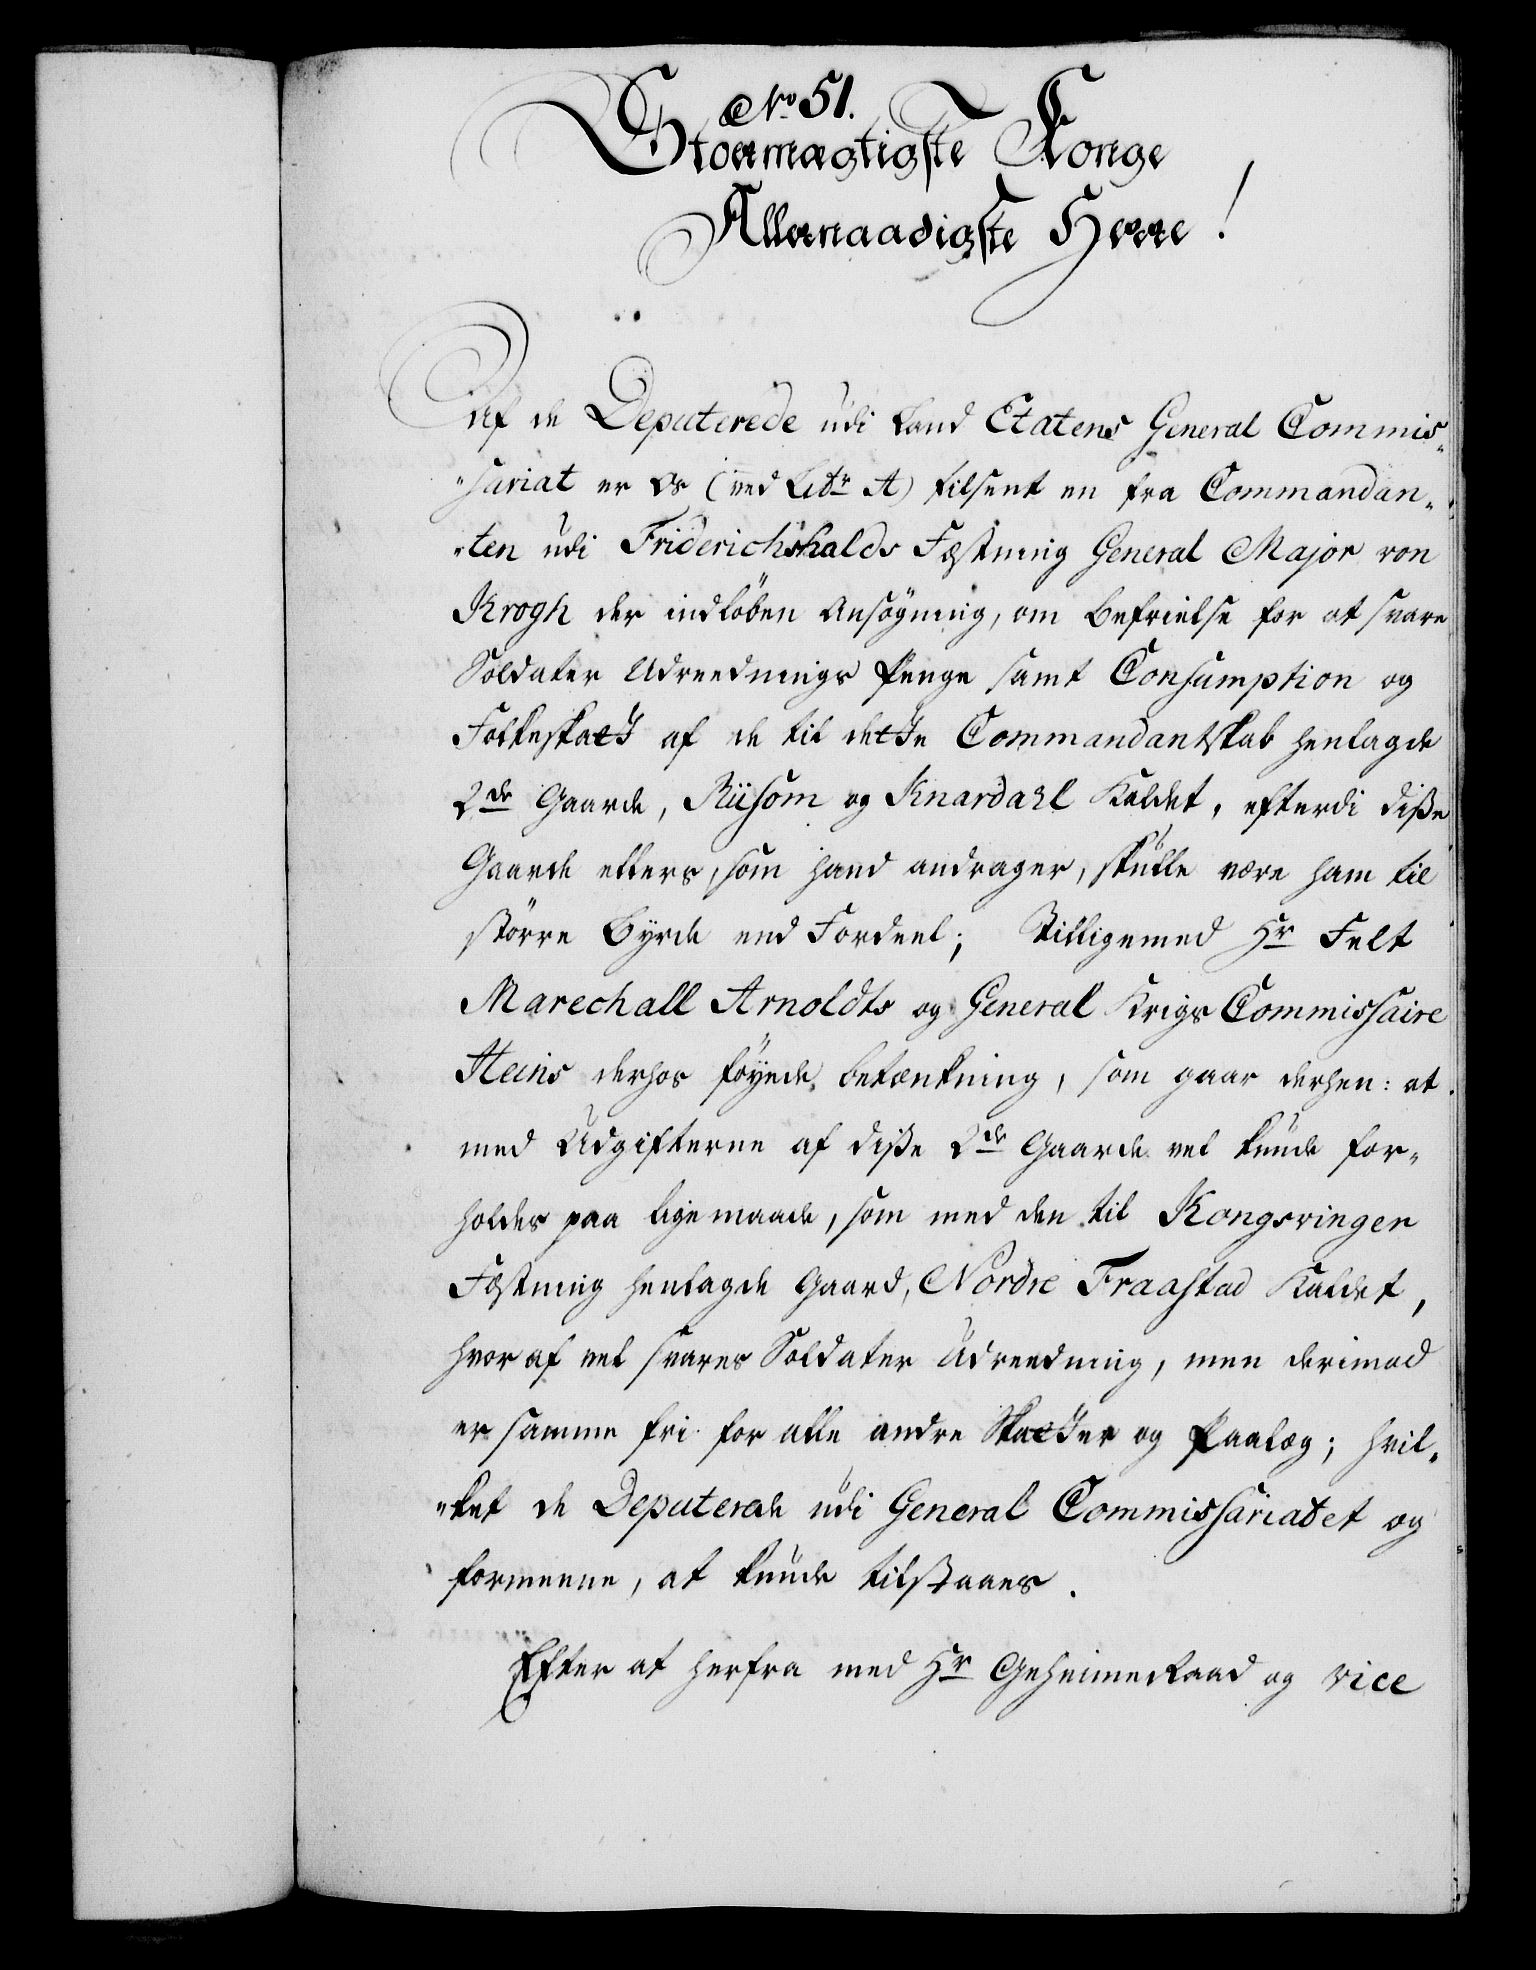 No 51.
Stormægtigste Konge
Allernaadigste Herre!
Af de Deputerede udi Land Etatens General Commis„
„sariat er os (ved Litr A) tilsent en fra Commandan„
„ten udi Friderichshalds Fæstning General Major von
Krogh der indløben Ansøgning, om Befrielse for at svare
Soldater Udreednings Penge samt Consumption og
Folkeskatt af de til dette Commandantskab henlagde
2de Gaarde, Riisom og Knardahl kaldet, efterdi diße
Gaarde ellers, som hand andrager, skulle være ham til
større Byrde end Fordeel; Tilligemed Hr Felt
Marechall Arnoldts og General Krigs Commissaire
Heins derhos føyede Betænkning, som gaar derhen: at
med Udgifterne af diße 2de Gaarde vel kunde for„
holdes paa lige maade, som med den til Kongsvinger
Fæstning henlagde Gaard, Nordre Fraastad kaldet,
hvoraf vel svares Soldater Udreedning, men derimod
er samme fri for alle andre Skatter og Paalæg; hvil„
„ket de Deputerede udi General Commissariatet og
formeene, at kunde tilstaaes.
Efter at herfra med Hr Geheime Raad og vice